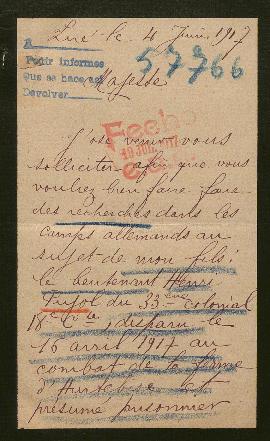 Luré le 4 Juin 1917
A
Pedir informes
Que se hace así
Devolver
57766
Majesté
Fecho
J'ose venir vous
solliciter afin que vous
vouliez bien faire faire
des recherches dans les
camps allemands au
sujet de mon fils:
le lieutenant Henri
Pujol du 33ème colonial
18e Cie disparu le
16 avril 1917 au
combat de la ferme
d'Hurtebise et
présumé prisonnier